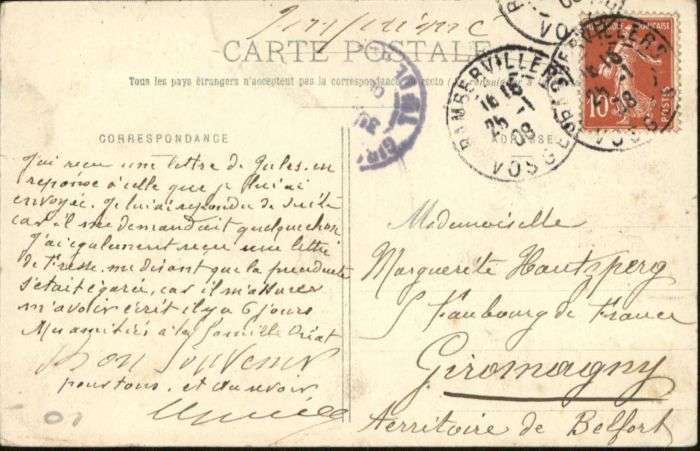 CARTE POSTALE
Tous les pays étrangers n'acceptent pas la correspondance au recto
CORRESPONDANCE
ADRESSE
RAMBERVILLERS
16 15
25 - 1
08
VOSGES
10
POSTES
J'ai reçu une lettre de Jules en
reponse à celle que je lui ai
envoyée. Je lui ai repondu de suite
car il me demandait quelque chose
J'ai également reçu une lettre
de Fresse me disant que la precedente
s'était égarée, car il m'assure
m'avoir écrit il y a 6 jours
Mes amitiés à la famille
Bon Souvenir
pour tous, et au revoir
Mademoiselle
Marguerite Hantzperg
Faubourg de France
Giromagny
Territoire de Belfort